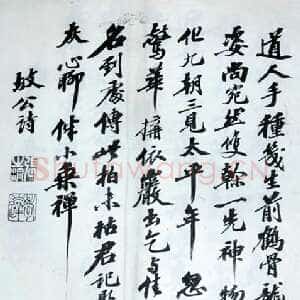 道人手種幾生前鶴骨龍
姿尚宛然雙幹一先神物
化九朝三見太平年忽
驚華構依巖出乞與佳
名到處傳此柏未枯君記取
灰心聊伴小乘禪
坡公詩